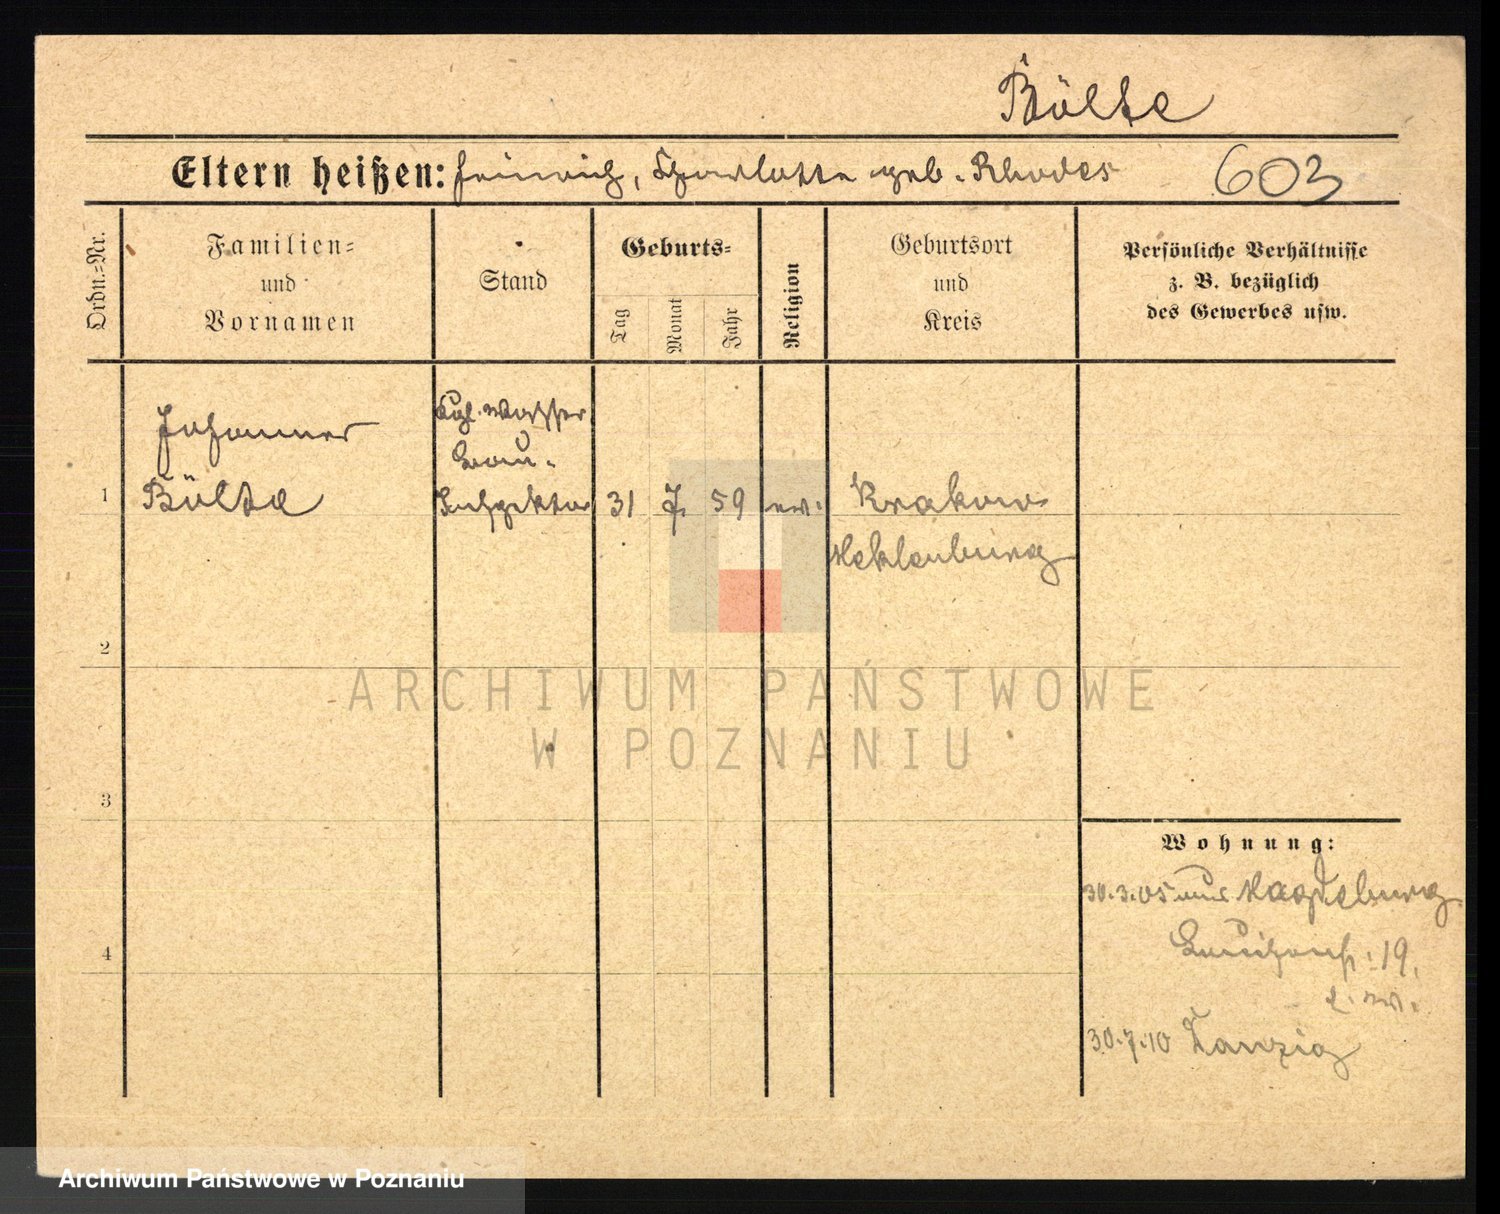 Bölte
Eltern heißen: Heinrich, Charlotte geb. Rhodes 603
Ordn.=Nr.
Familien=
und
Vornamen
Stand
Geburts=
Tag
Monat
Jahr
Religion
Geburtsort
und
Kreis
Persönliche Verhältnisse
z. B. bezüglich
des Gewerbes usw.
Johannes
Kgl. Wasser
Bau-
1 Bölte Inspektor 31 7. 59 ev. Krakow
Meklenburg
2
ARCHIWUM PAŃSTWOWE
W POZNANIU
3
Wohnung:
30.3.05 aus Magdeburg
19.
4
30.7.10 Danzig
Archiwum Państwowe w Poznaniu